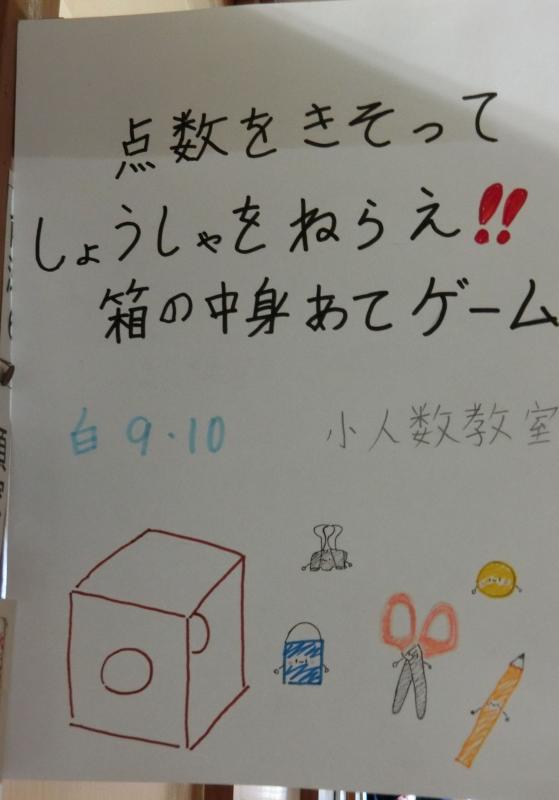 点数をきそって
しょうしゃをねらえ!!
箱の中身あてゲーム
白 9・10
小人数教室